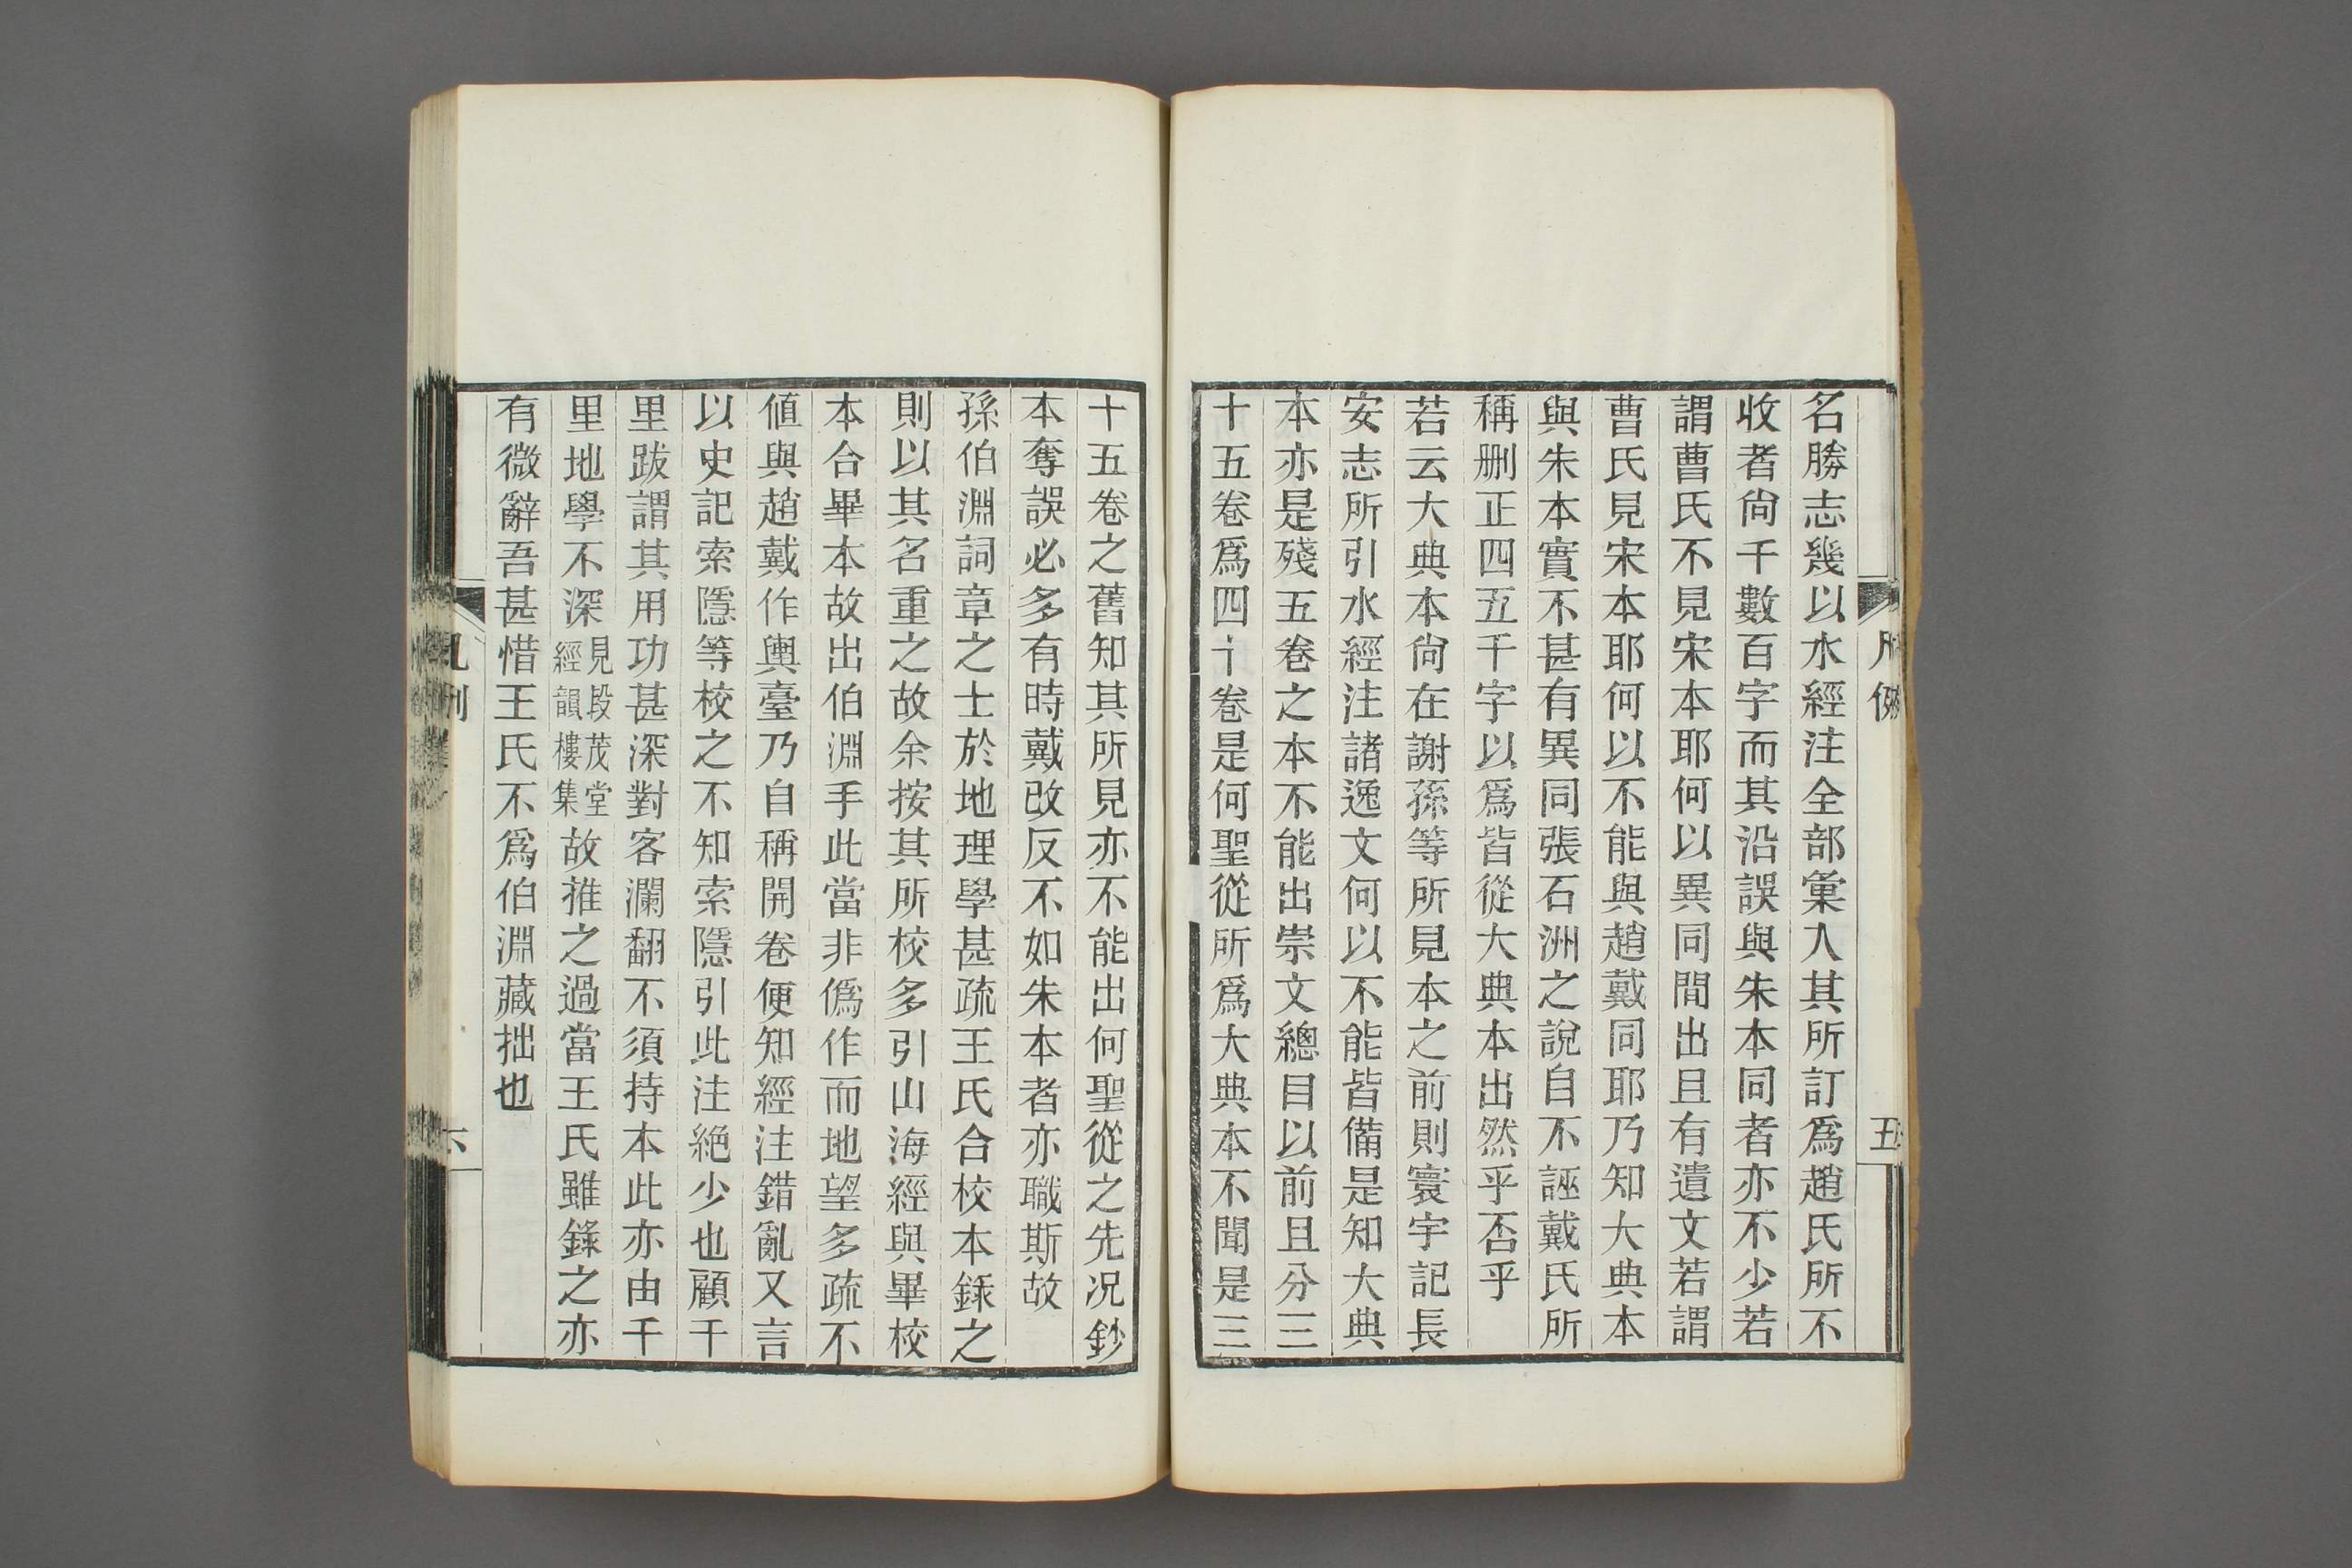 凡例
五
名勝志幾以水經注全部彙入其所訂爲趙氏所不
收者尙千數百字而其沿誤與朱本同者亦不少若
謂曹氏不見宋本耶何以異同間出且有遺文若謂
曹氏見宋本耶何以不能與趙戴同耶乃知大典本
與朱本實不甚有異同張石洲之說自不誣戴氏所
稱刪正四五千字以爲皆從大典本出然乎否乎
若云大典本尙在謝孫等所見本之前則寰宇記長
安志所引水經注諸逸文何以不能皆備是知大典
本亦是殘五卷之本不能出崇文總目以前且分三
十五卷爲四十卷是何聖從所爲大典本不聞是三
十五卷之舊知其所見亦不能出何聖從之先况鈔
本奪誤必多有時戴改反不如朱本者亦職斯故
孫伯淵詞章之士於地理學甚疏王氏合校本錄之
則以其名重之故余按其所校多引山海經與畢校
本合畢本故出伯淵手此當非僞作而地望多疏不
値與趙戴作輿臺乃自稱開卷便知經注錯亂又言
以史記索隱等校之不知索隱引此注絕少也顧千
里跋謂其用功甚深對客瀾翻不須持本此亦由千
里地學不深見段茂堂經韻樓集故推之過當王氏雖錄之亦
有微辭吾甚惜王氏不爲伯淵藏拙也
凡例
六